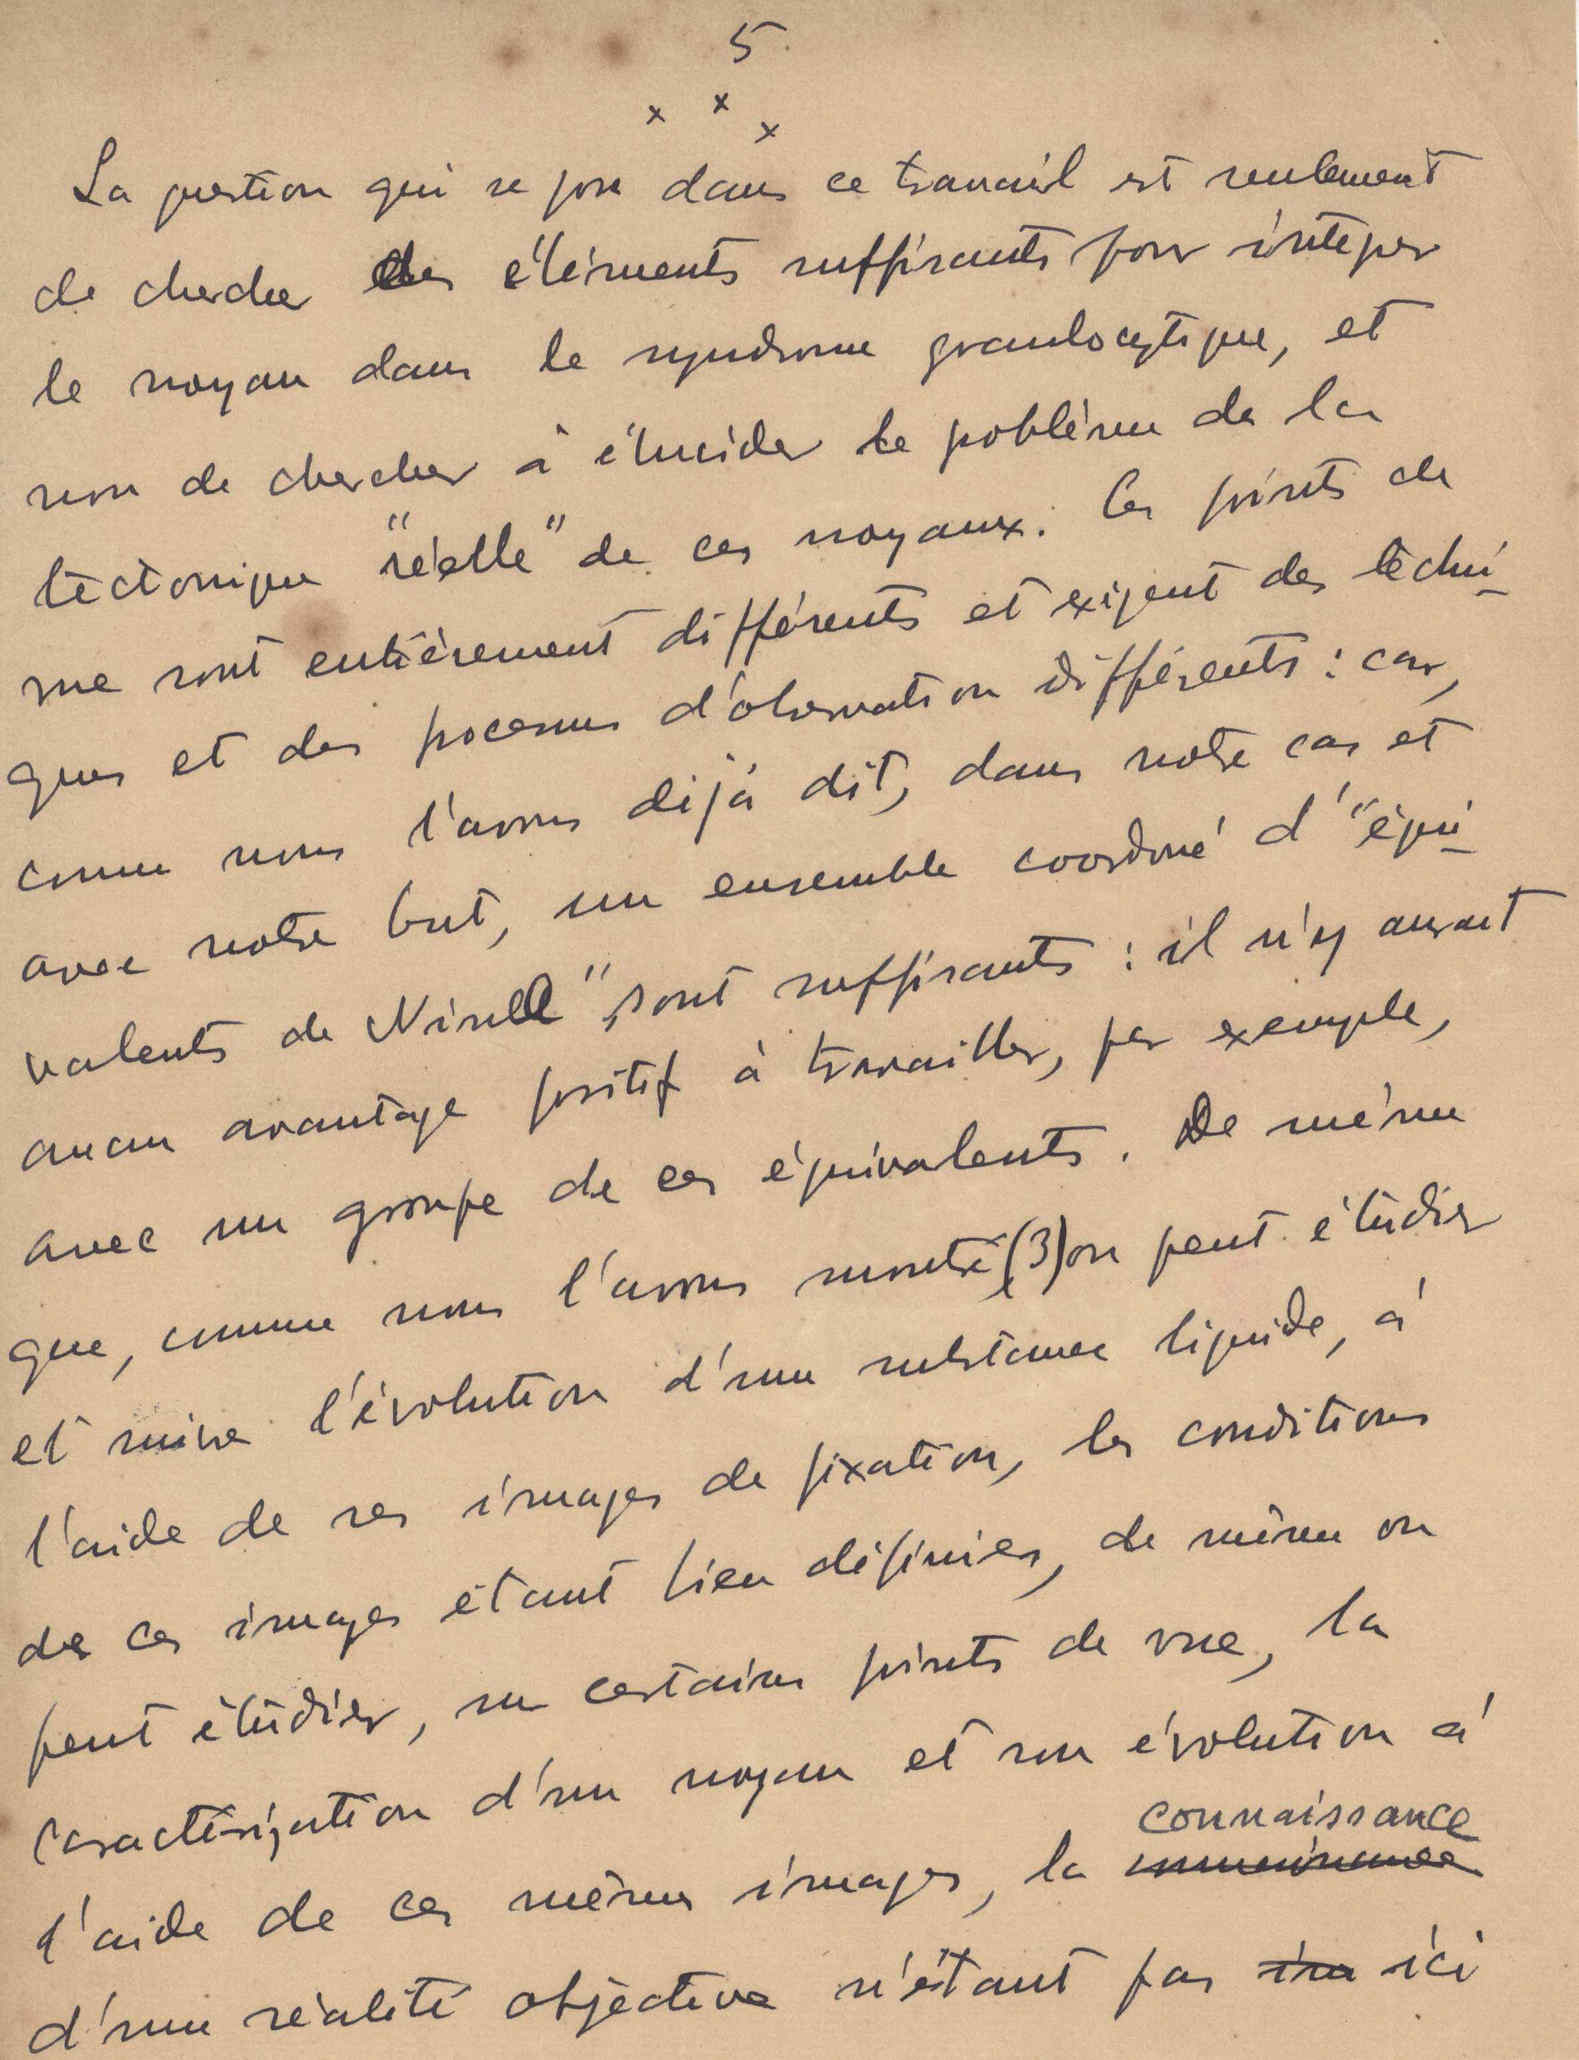 5
x x x
La question qui se pose dans ce travail est seulement
de chercher des éléments suffisants pour intégrer
le noyau dans le syndrome granulocytique, et
non de chercher à élucider le problème de la
tectonique "réelle" de ces noyaux. Ces points de
vue sont entièrement différents et exigent des techni-
ques et des processus d'observation différents : car,
comme nous l'avons déjà dit, dans notre cas et
avec notre but, un ensemble coordoné d'"équi-
valents de Nissl" sont suffisants : il n'y aurait
aucun avantage positif à travailler, par exemple,
avec un groupe de ces équivalents. De même
que, comme nous l'avons montré (3) on peut étudier
et suivre l'évolution d'une substance liquide, à
l'aide de ses images de fixation, les conditions
de ces images étant bien définies, de même on
peut étudier, sur certains points de vue, la
caractérisation d'un noyau et son évolution à
l'aide de ces mêmes images, la connaissance
d'une réalité objective n'étant pas ici